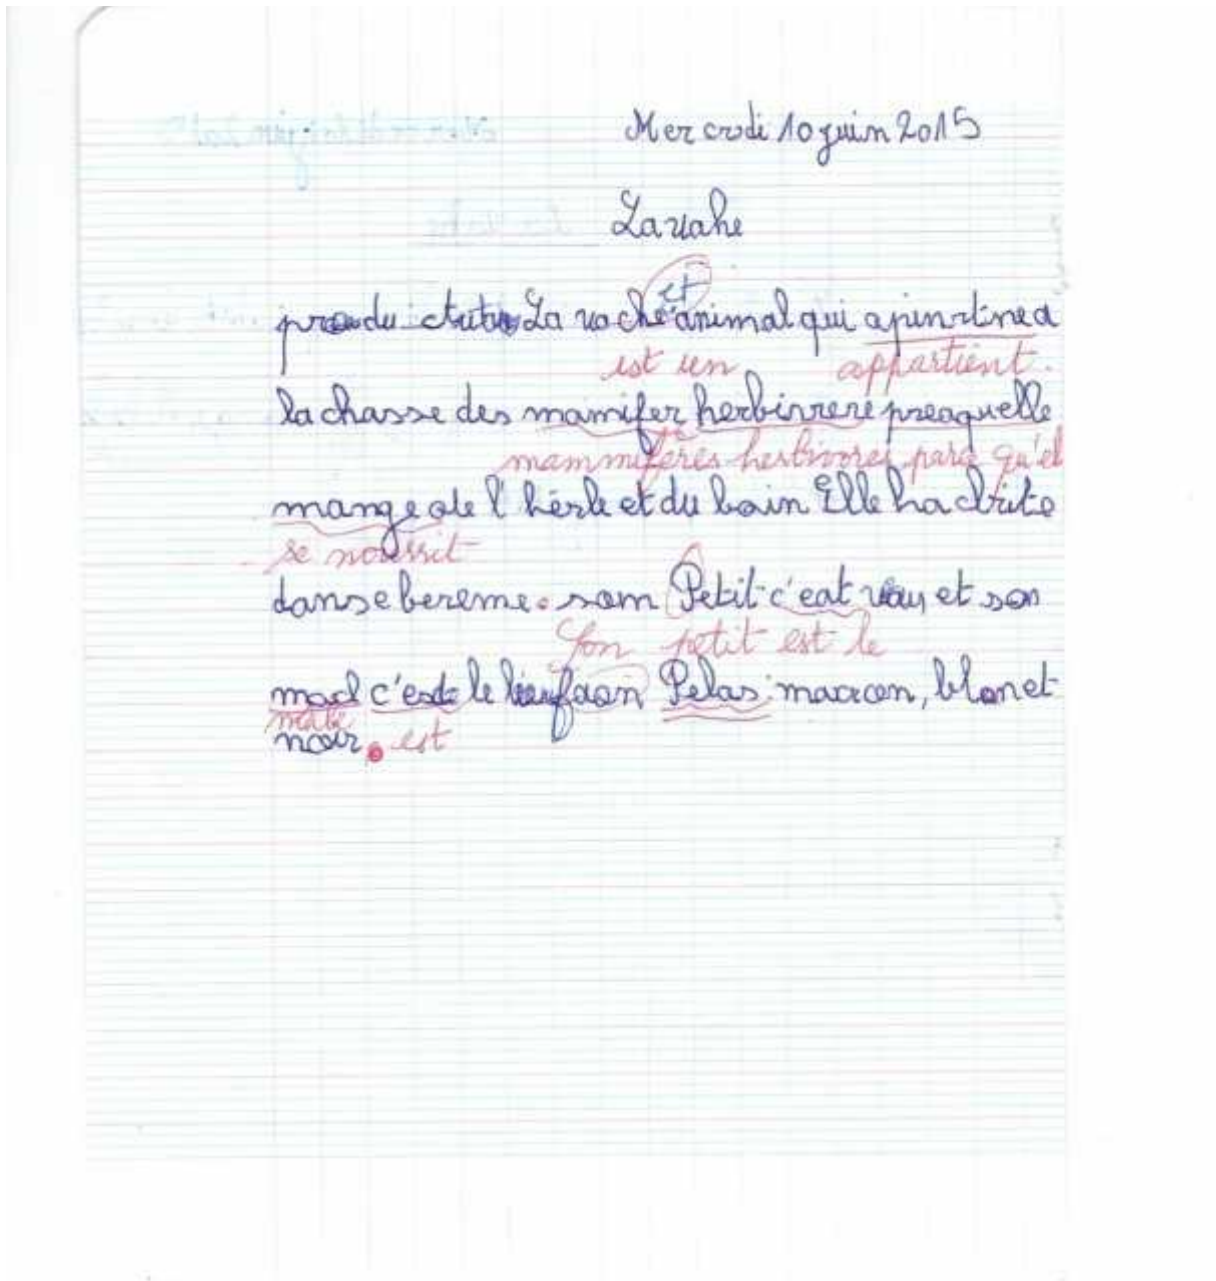 Mercrodi 10 juin 2015
La vahe
et
La vache animal qui apinrtine a
est un appartient.
la chasse des mamifer herbinrere preaquelle
mammifères herbivores parce qu'el
mange de l'hèrbe et du boin Elle ha brite
se nourrit
danse bereme. som Petit c'eat vau, et son
Son petit est le
mal c'est le Pelas marcon, blon et
male
noir. est